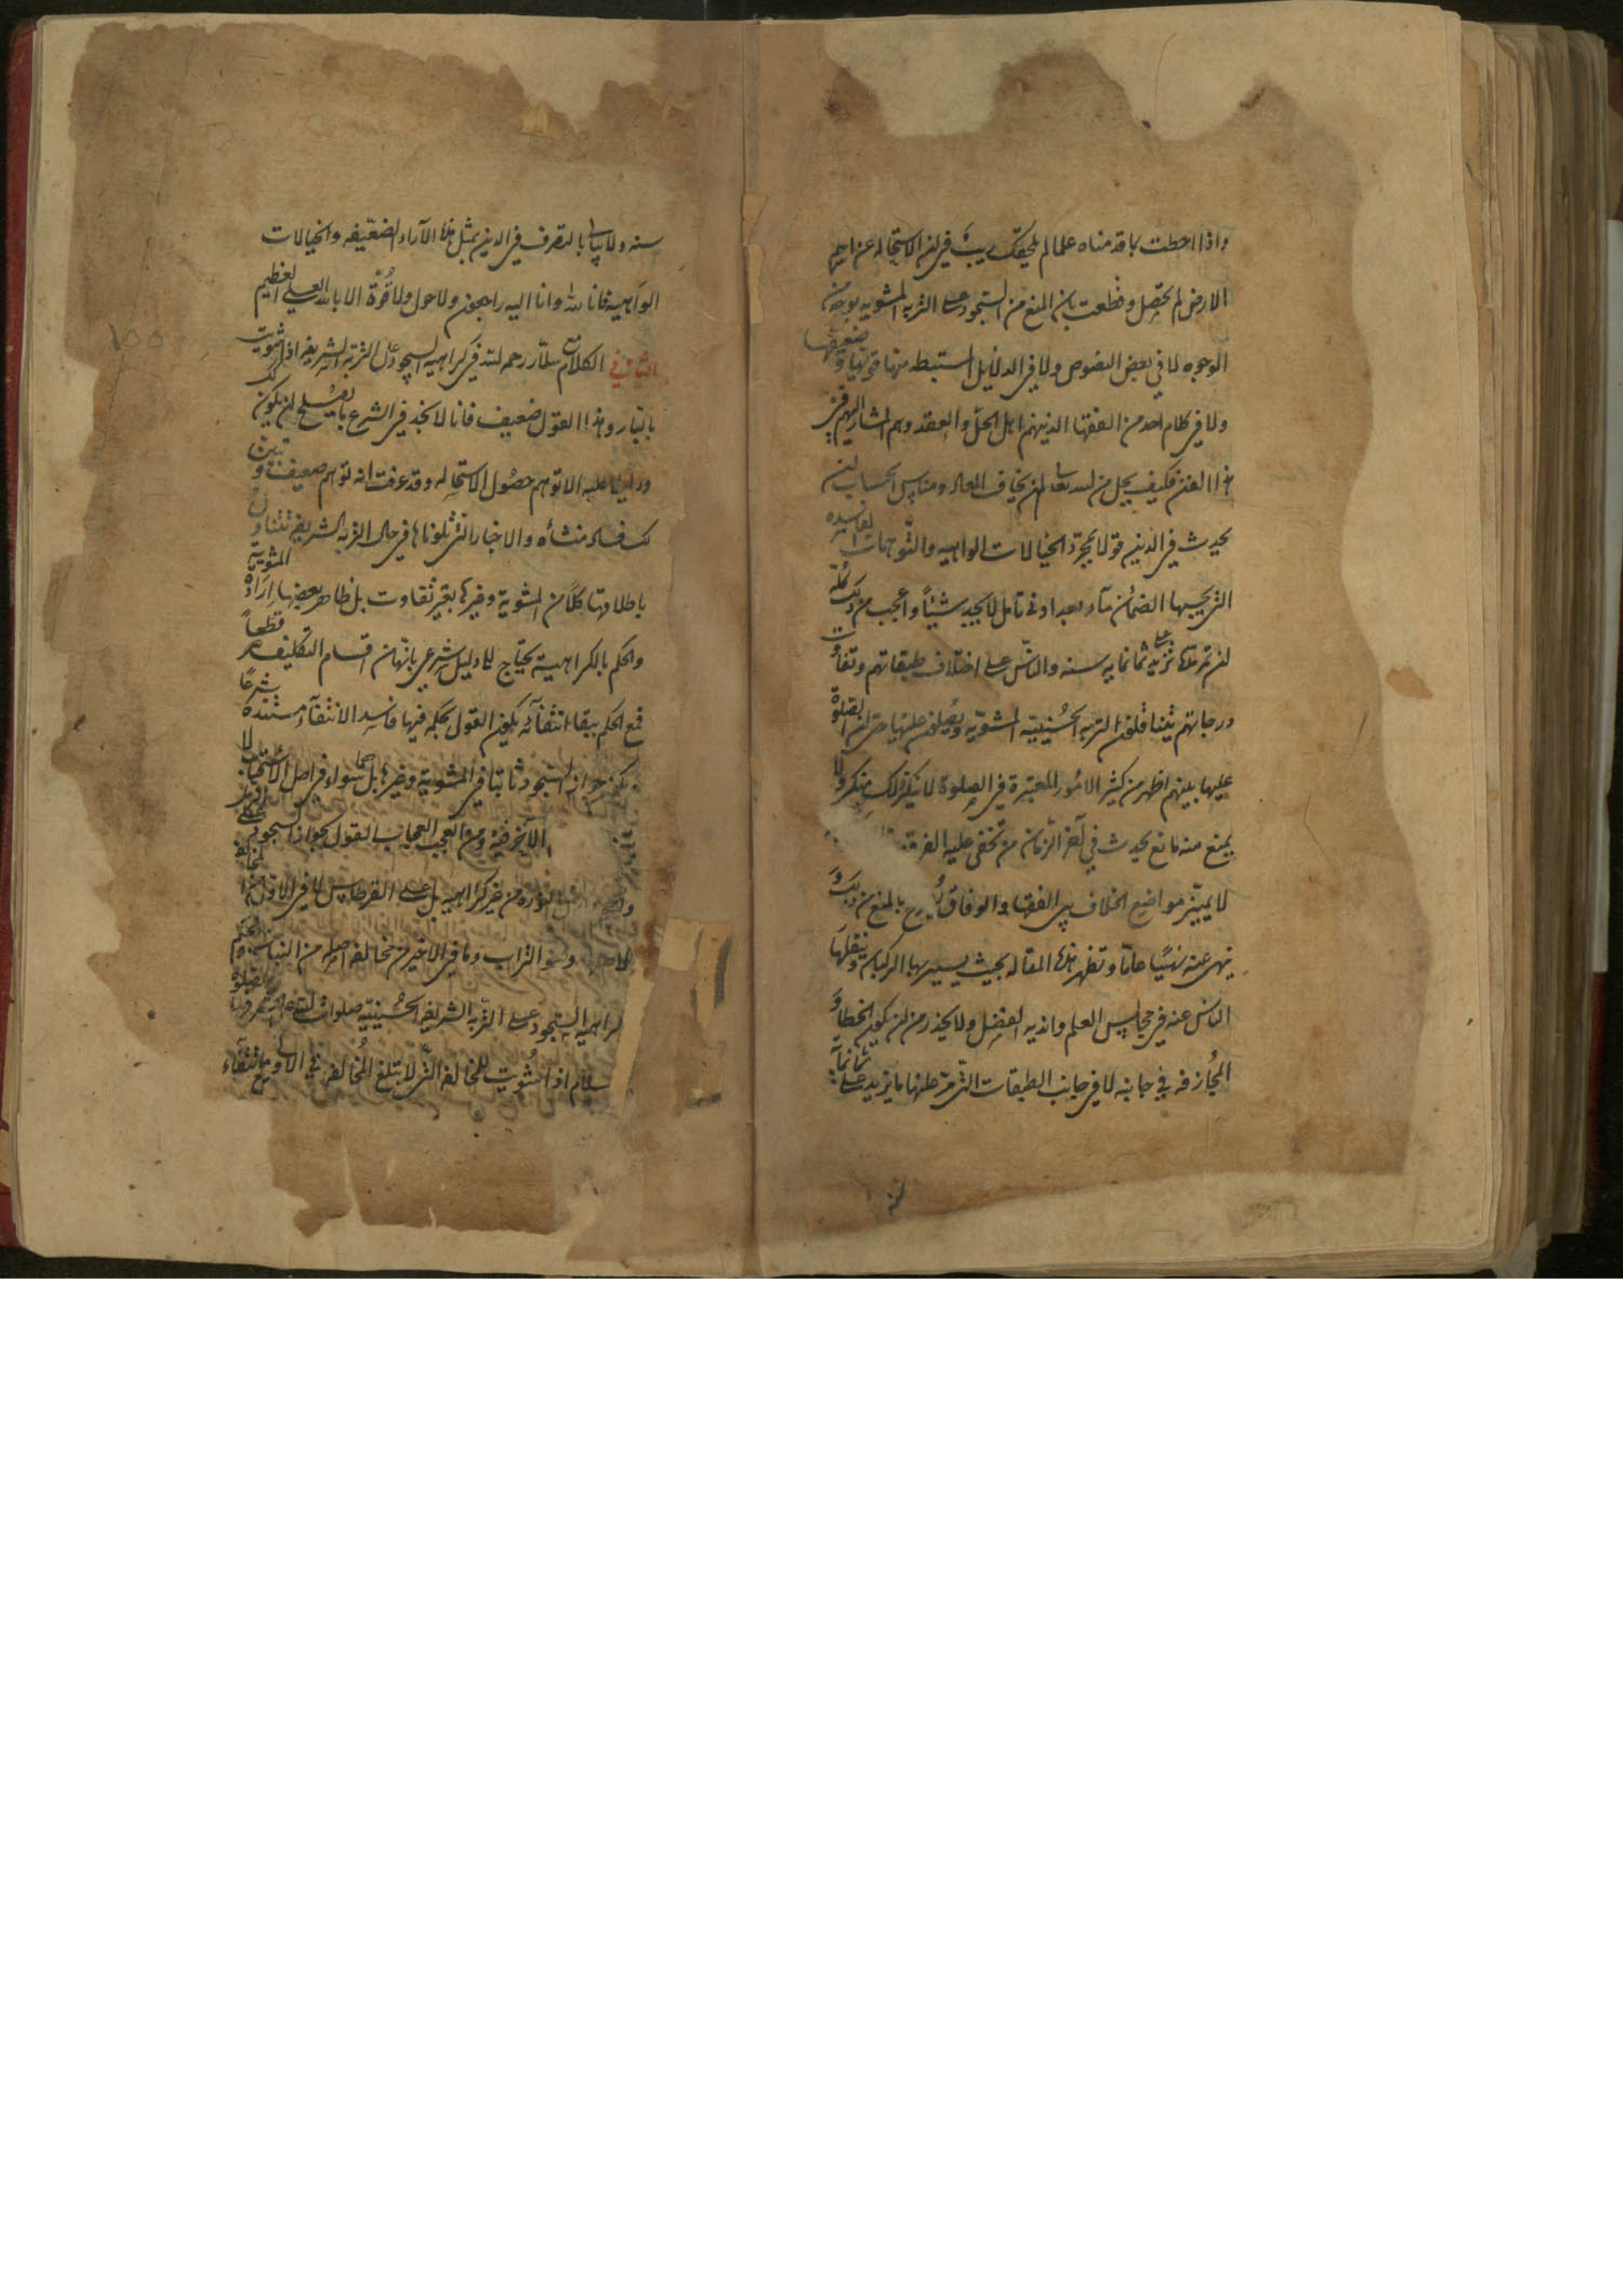 واذا احطت بما قدمناه علما لم يلحقك ريب في ان الاستحاله عن اسم
الارض لم يحصل وقطعت بان المنع من السجود على التربه المشويه بوجه من
الوجوه لا في بعض النصوص ولا في الدلايل المستنبطه منها قويها وضعيفها
ولا في كلام احد من الفقها الذين هم اهل الحل والعقد وهم المشار اليهم في
هذا الفن فكيف يحل من لله تعالى لمن يخاف المعاد ومناسي الحساب ان
يحدث في الدين قولا بمجرد الخيالات الواهيه والتوهمات الفاسده
التي يحسبها الضمان ماء وبعد ادنى تامل لا يجد شيئا واعجب من ذلك كله
ان تمر ثمانمايه سنه والناس على اختلاف طبقاتهم وتفاوت
درجاتهم يتناقلون التربه الحسينيه المشويه ويصلون عليها حتى ان الصلوة
عليها بينهم اظهر من كثير الامور المعتبرة في الصلوة لا ينكر ذلك منكر ولا
يمنع منه مانع يحدث في آخر الزمان من تخفى عليه الفرق
لا يميز مواضع الخلاف بين الفقها والوفاق بالمنع من ذلك و
ينهى عنه نهيا عاما وتظهر هذه المقاله بحيث يسير بها الركبان وينقلها
الناس عنه في مجالس العلم واندية الفضل ولا يحذر من ان يكون الخطا و
المجازفه في جانبه لا في جانب الطبقات التي مر عليها ما يزيد على ثمانمائة
سنه
سنه ولا يبالي بالتصرف في الدين بمثل هذه الآراء الضعيفه والخيالات
الواهيه فانا لله وانا اليه راجعون ولا حول ولا قوة الا بالله العلي العظيم
الثاني الكلام سلار رحمه الله في كراهيه السجود على التربه الشريفه اذا شويت
بالنار وهذا القول ضعيف فانا لا نجد في الشرع ما يصلح لان يكون
دليلا عليه الا توهم حصول الاستحاله وقد عرفت انه توهم ضعيف وتبين
لك فساد منشأه والاخبار التي تلوناها في حال التربه الشريفه تتناول
باطلاقها كلا من المشوية وغيرها بغير تفاوت بل ظاهر بعضها ارادة المشوية
والحكم بالكراهية يحتاج الى دليل شرعي بانها من اقسام التكليف قطعا
فمع الحكم ببقا انتفائه يكون القول بحكمه فيها فاسد الانتفاء مستنده شرعا
يكون جواز السجود ثابتا في المشوية وغيرها بل هما سواء في اصل الاستحباب لا
الآخر فيه ومن العجب العجاب القول بجواز السجود على
النوره من غير كراهيه بل على القرطاس لا في الاول من
وهو التراب وما في الاخير من مخالفه اصله من النبات
كراهيه السجود على التربه الشريفه الحسينيه صلوات الله على مشرفها
سلام اذا شويت للمخالفه التي لا تبلغ المخالفه في الاولى مع انتفاء